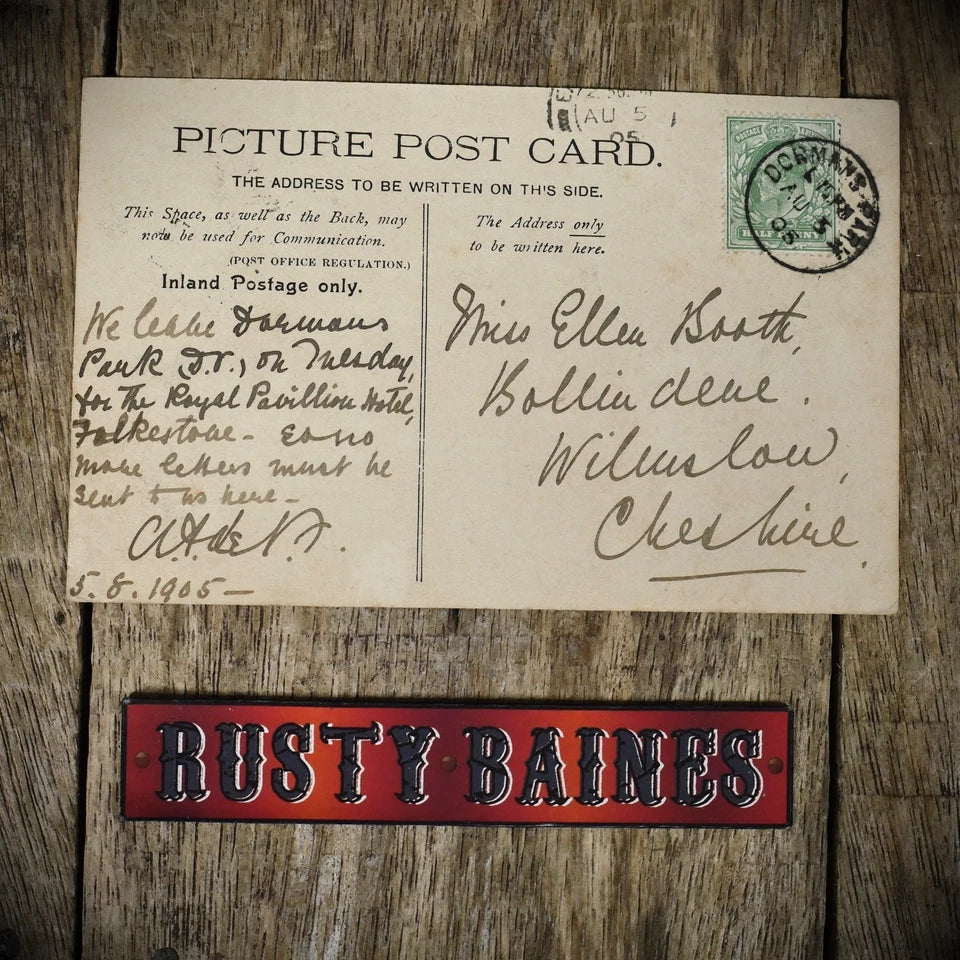 AU 5
05
PICTURE POST CARD.
THE ADDRESS TO BE WRITTEN ON THIS SIDE.
This Space, as well as the Back, may
now be used for Communication.
(POST OFFICE REGULATION.)
Inland Postage only.
The Address only
to be written here.
POSTAGE
HALFPENNY
DORMANS PARK
AU 5
05
We leave Dormans
Park D.V., on Tuesday,
for the Royal Pavillion Hotel,
Folkestone - so no
more letters must be
sent to us here -
5.8.1905 -
Miss Ellen Booth,
Bollin dene.
Wilmslow,
Cheshire.
RUSTY BAINES